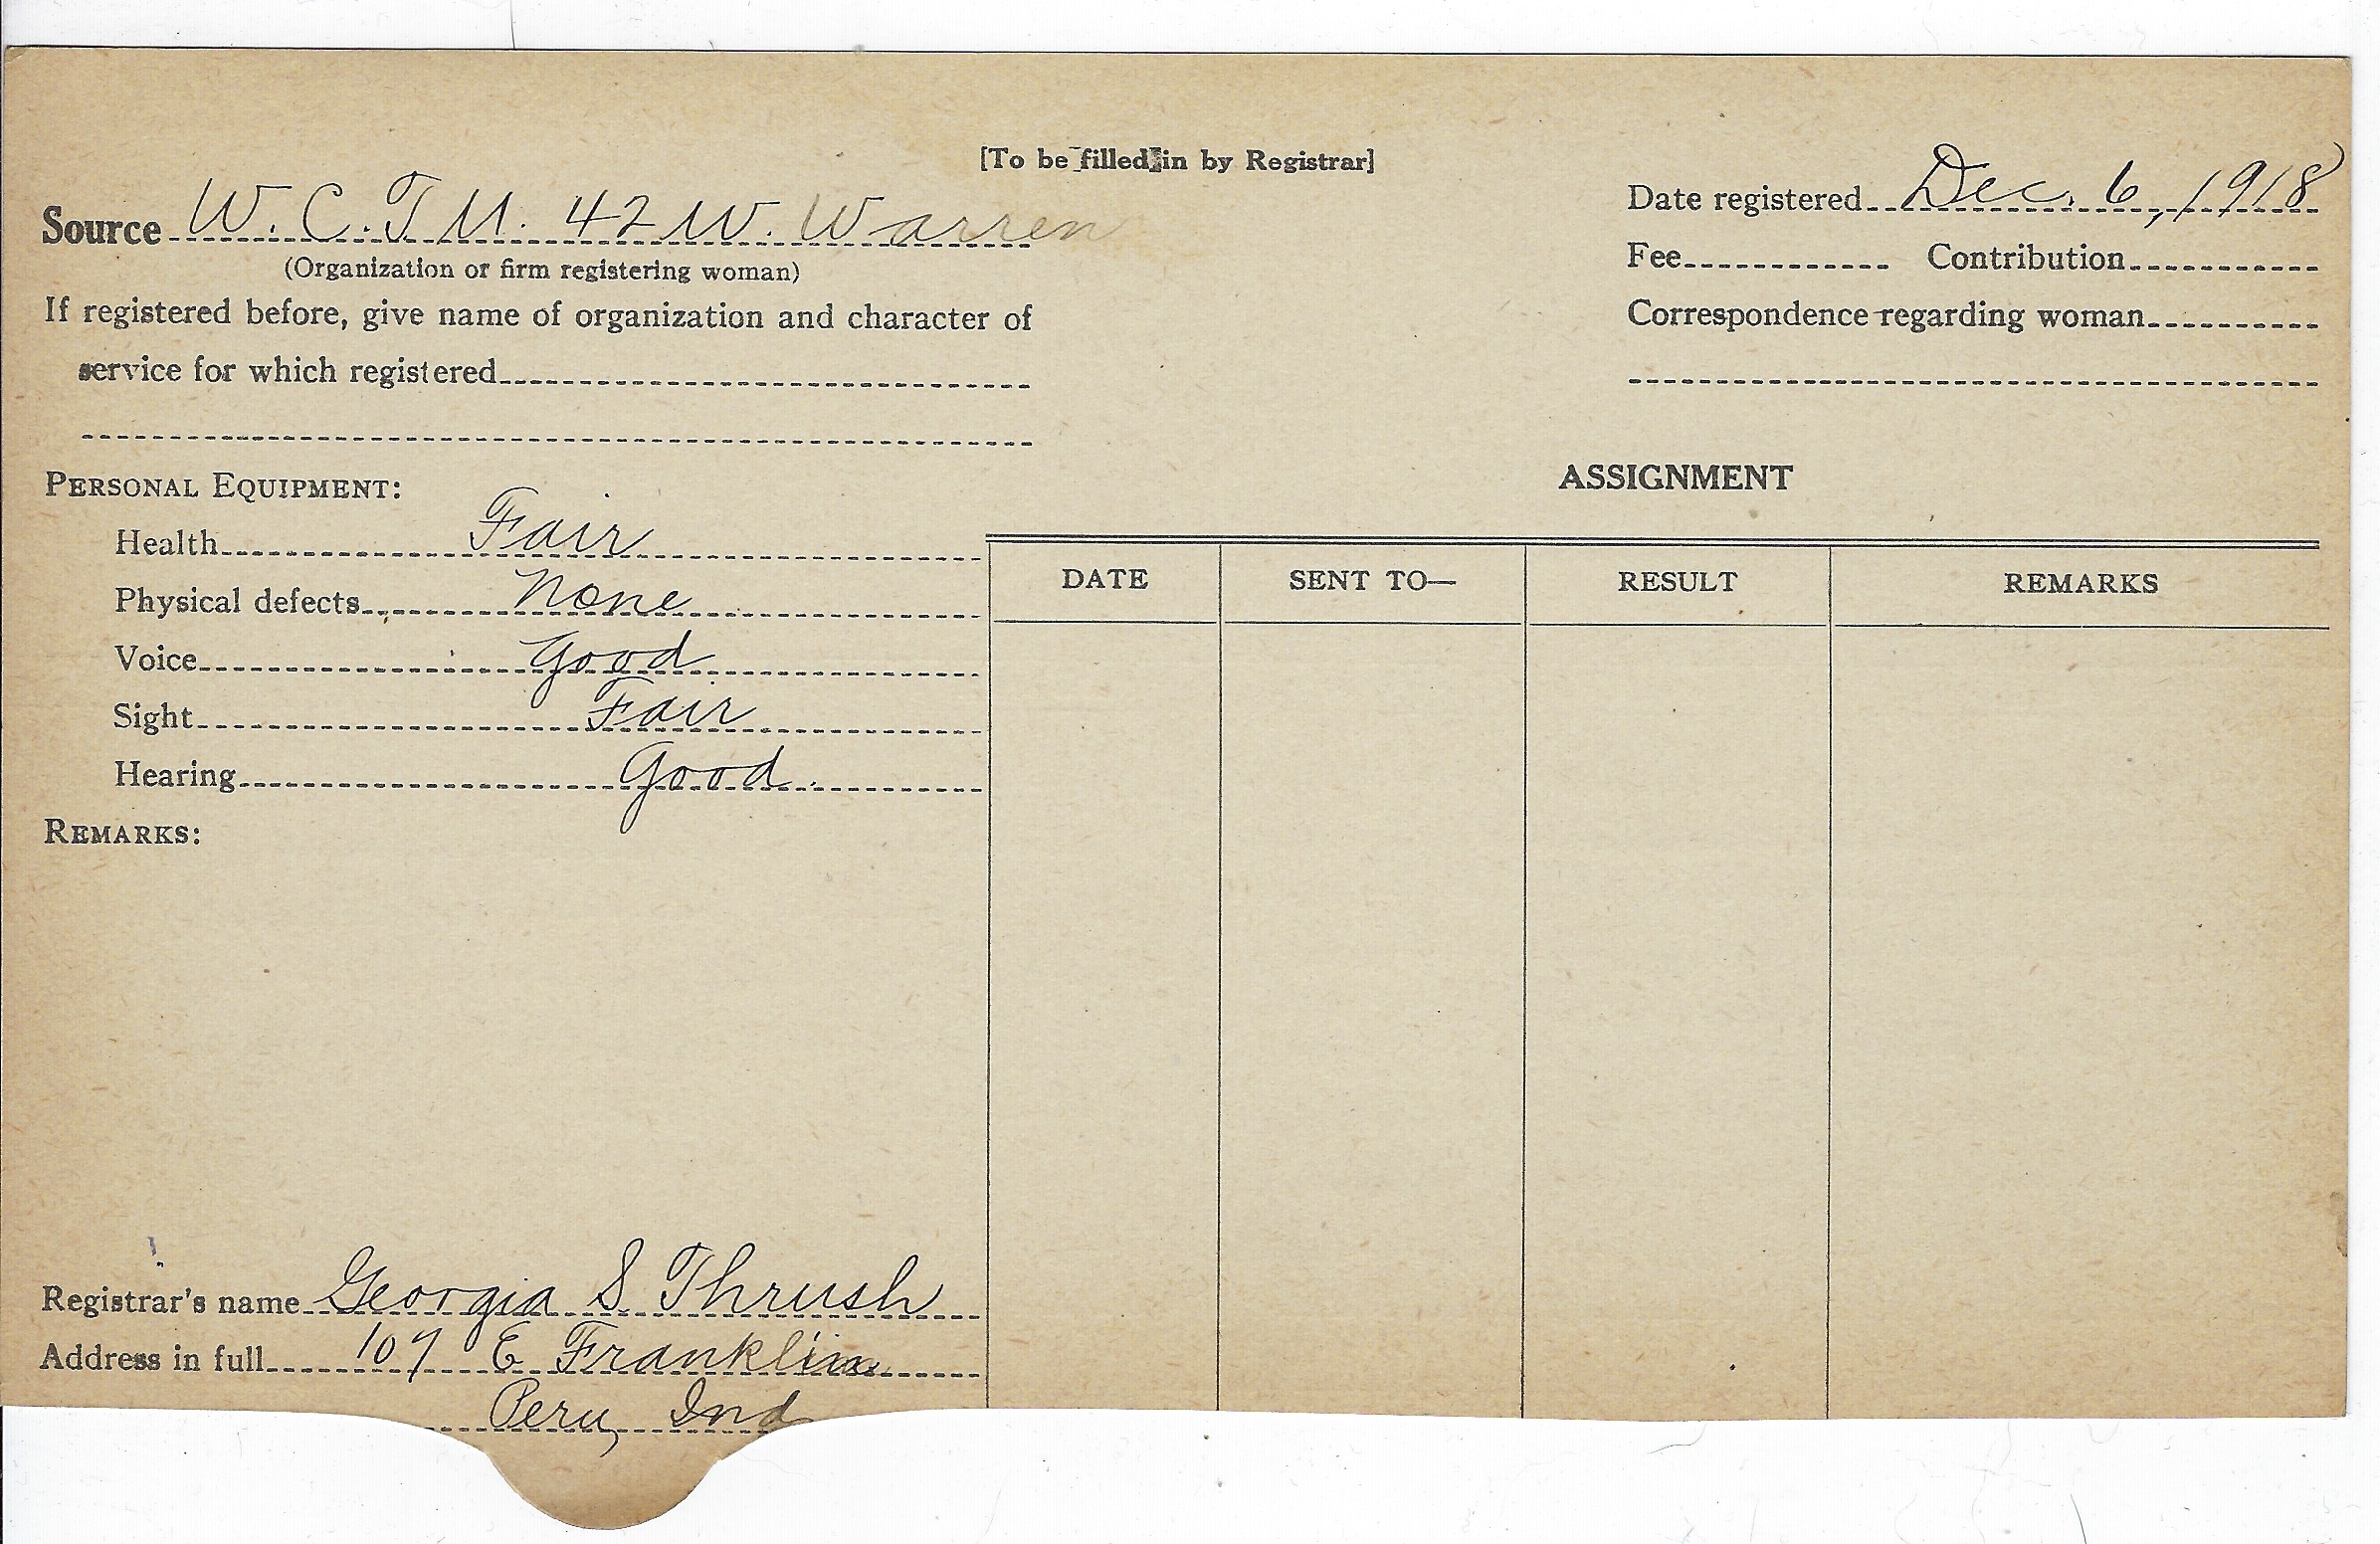 [To be filled in by Registrar]
Source W. C. T. U. 42 W. Warren
(Organization or firm registering woman)
Date registered Dec. 6, 1918
Fee Contribution
If registered before, give name of organization and character of
service for which registered
Correspondence regarding woman
PERSONAL EQUIPMENT:
Health Fair
Physical defects None
Voice Good
Sight Fair
Hearing Good.
REMARKS:
ASSIGNMENT
DATE SENT TO— RESULT REMARKS
Registrar's name Georgia S. Thrush
Address in full 107 E Franklin
Peru, Ind